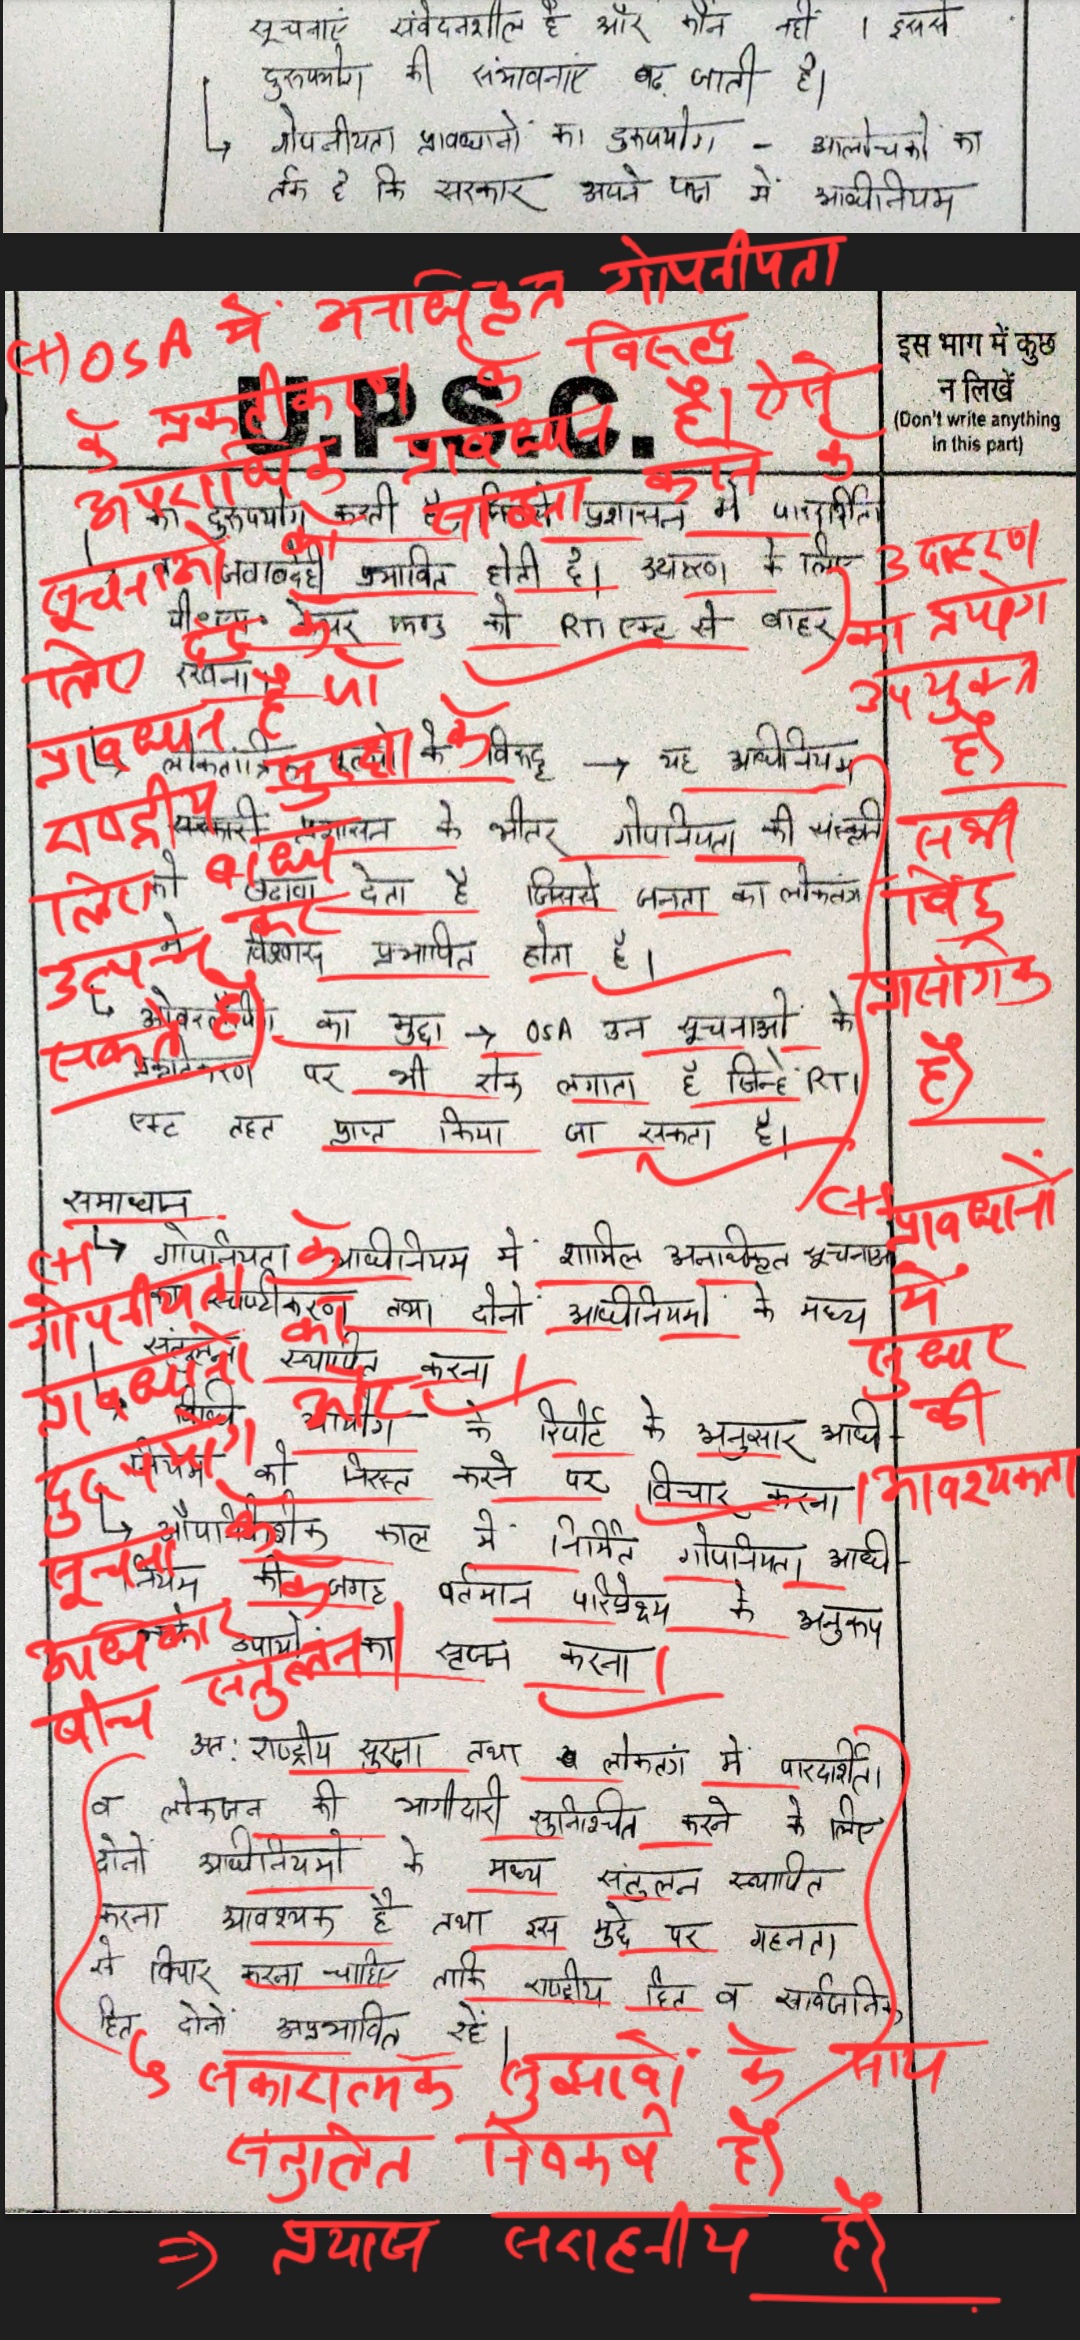 सूचनाएं संवेदनशील है और कौन नहीं । इससे
दुरुपयोग की संभावनाएं बढ़ जाती है।
↳ गोपनीयता प्रावधानों का दुरुपयोग - आलोचकों का
तर्क है कि सरकार अपने पक्ष में अधिनियम
(+) OSA में अनाधिकृत गोपनीयता
के प्रकटीकरण के विरुद्ध
अपराधिक प्रावधान है। ऐसे
सूचनाओं को साझा करने के
लिए दंड के
प्रावधान है जो
राष्ट्रीय सुरक्षा के
लिए बाध्य
उत्पन्न कर
सकते है)
U.P.S.C.
इस भाग में कुछ
न लिखें
(Don't write anything
in this part)
का दुरुपयोग करती है, जिससे प्रशासन में पारदर्शिता
व जवाबदेही प्रभावित होती है। उदाहरण के लिए
पी॰एम॰ केयर फण्ड को RTI एक्ट से बाहर
रखना।
उदाहरण
का प्रयोग
उपयुक्त
है)
↳ लोकतांत्रिक मूल्यों के विरुद्ध → यह अधिनियम
सरकारी प्रशासन के भीतर गोपनियता की संस्कृति
को बढ़ावा देता है जिससे जनता का लोकतंत्र
में विश्वास प्रभावित होता है।
↳ ओवरलैपिंग का मुद्दा → OSA उन सूचनाओं के
प्रकटीकरण पर भी रोक लगाता है जिन्हे RTI
एक्ट तहत प्राप्त किया जा सकता है।
सभी
बिंदु
प्रासंगिक
है)
समाधान
↳ गोपनियता अधिनियम में शामिल अनाधिकृत सूचनाओं
का स्पष्टीकरण तथा दोनों अधिनियमों के मध्य
संतुलन स्थापित करना।
↳ विधि आयोग के रिपोर्ट के अनुसार अधि-
नियम को निरस्त करने पर विचार करना।
↳ औपनिवेशिक काल में निर्मित गोपनियता अधि-
नियम की जगह वर्तमान परिप्रेक्ष्य के अनुरूप
उपायों का सृजन करना।
(+ प्रावधानों
में
सुधार
की
आवश्यकता
(+) गोपनीयता के
प्रावधानों का
दुरुपयोग और
सूचना के
अधिकार के
बीच संतुलन।
अतः राष्ट्रीय सुरक्षा तथा लोकतंत्र में पारदर्शिता
व लोकजन की भागीदारी सुनिश्चित करने के लिए
दोनों अधिनियमों के मध्य संतुलन स्थापित
करना आवश्यक है तथा इस मुद्दे पर गहनता
से विचार करना चाहिए ताकि राष्ट्रीय हित व सार्वजनिक
हित दोनों अप्रभावित रहें।
↳ सकारात्मक सुझावों के साथ
संतुलित निष्कर्ष है)
⇒ प्रयास सराहनीय है)